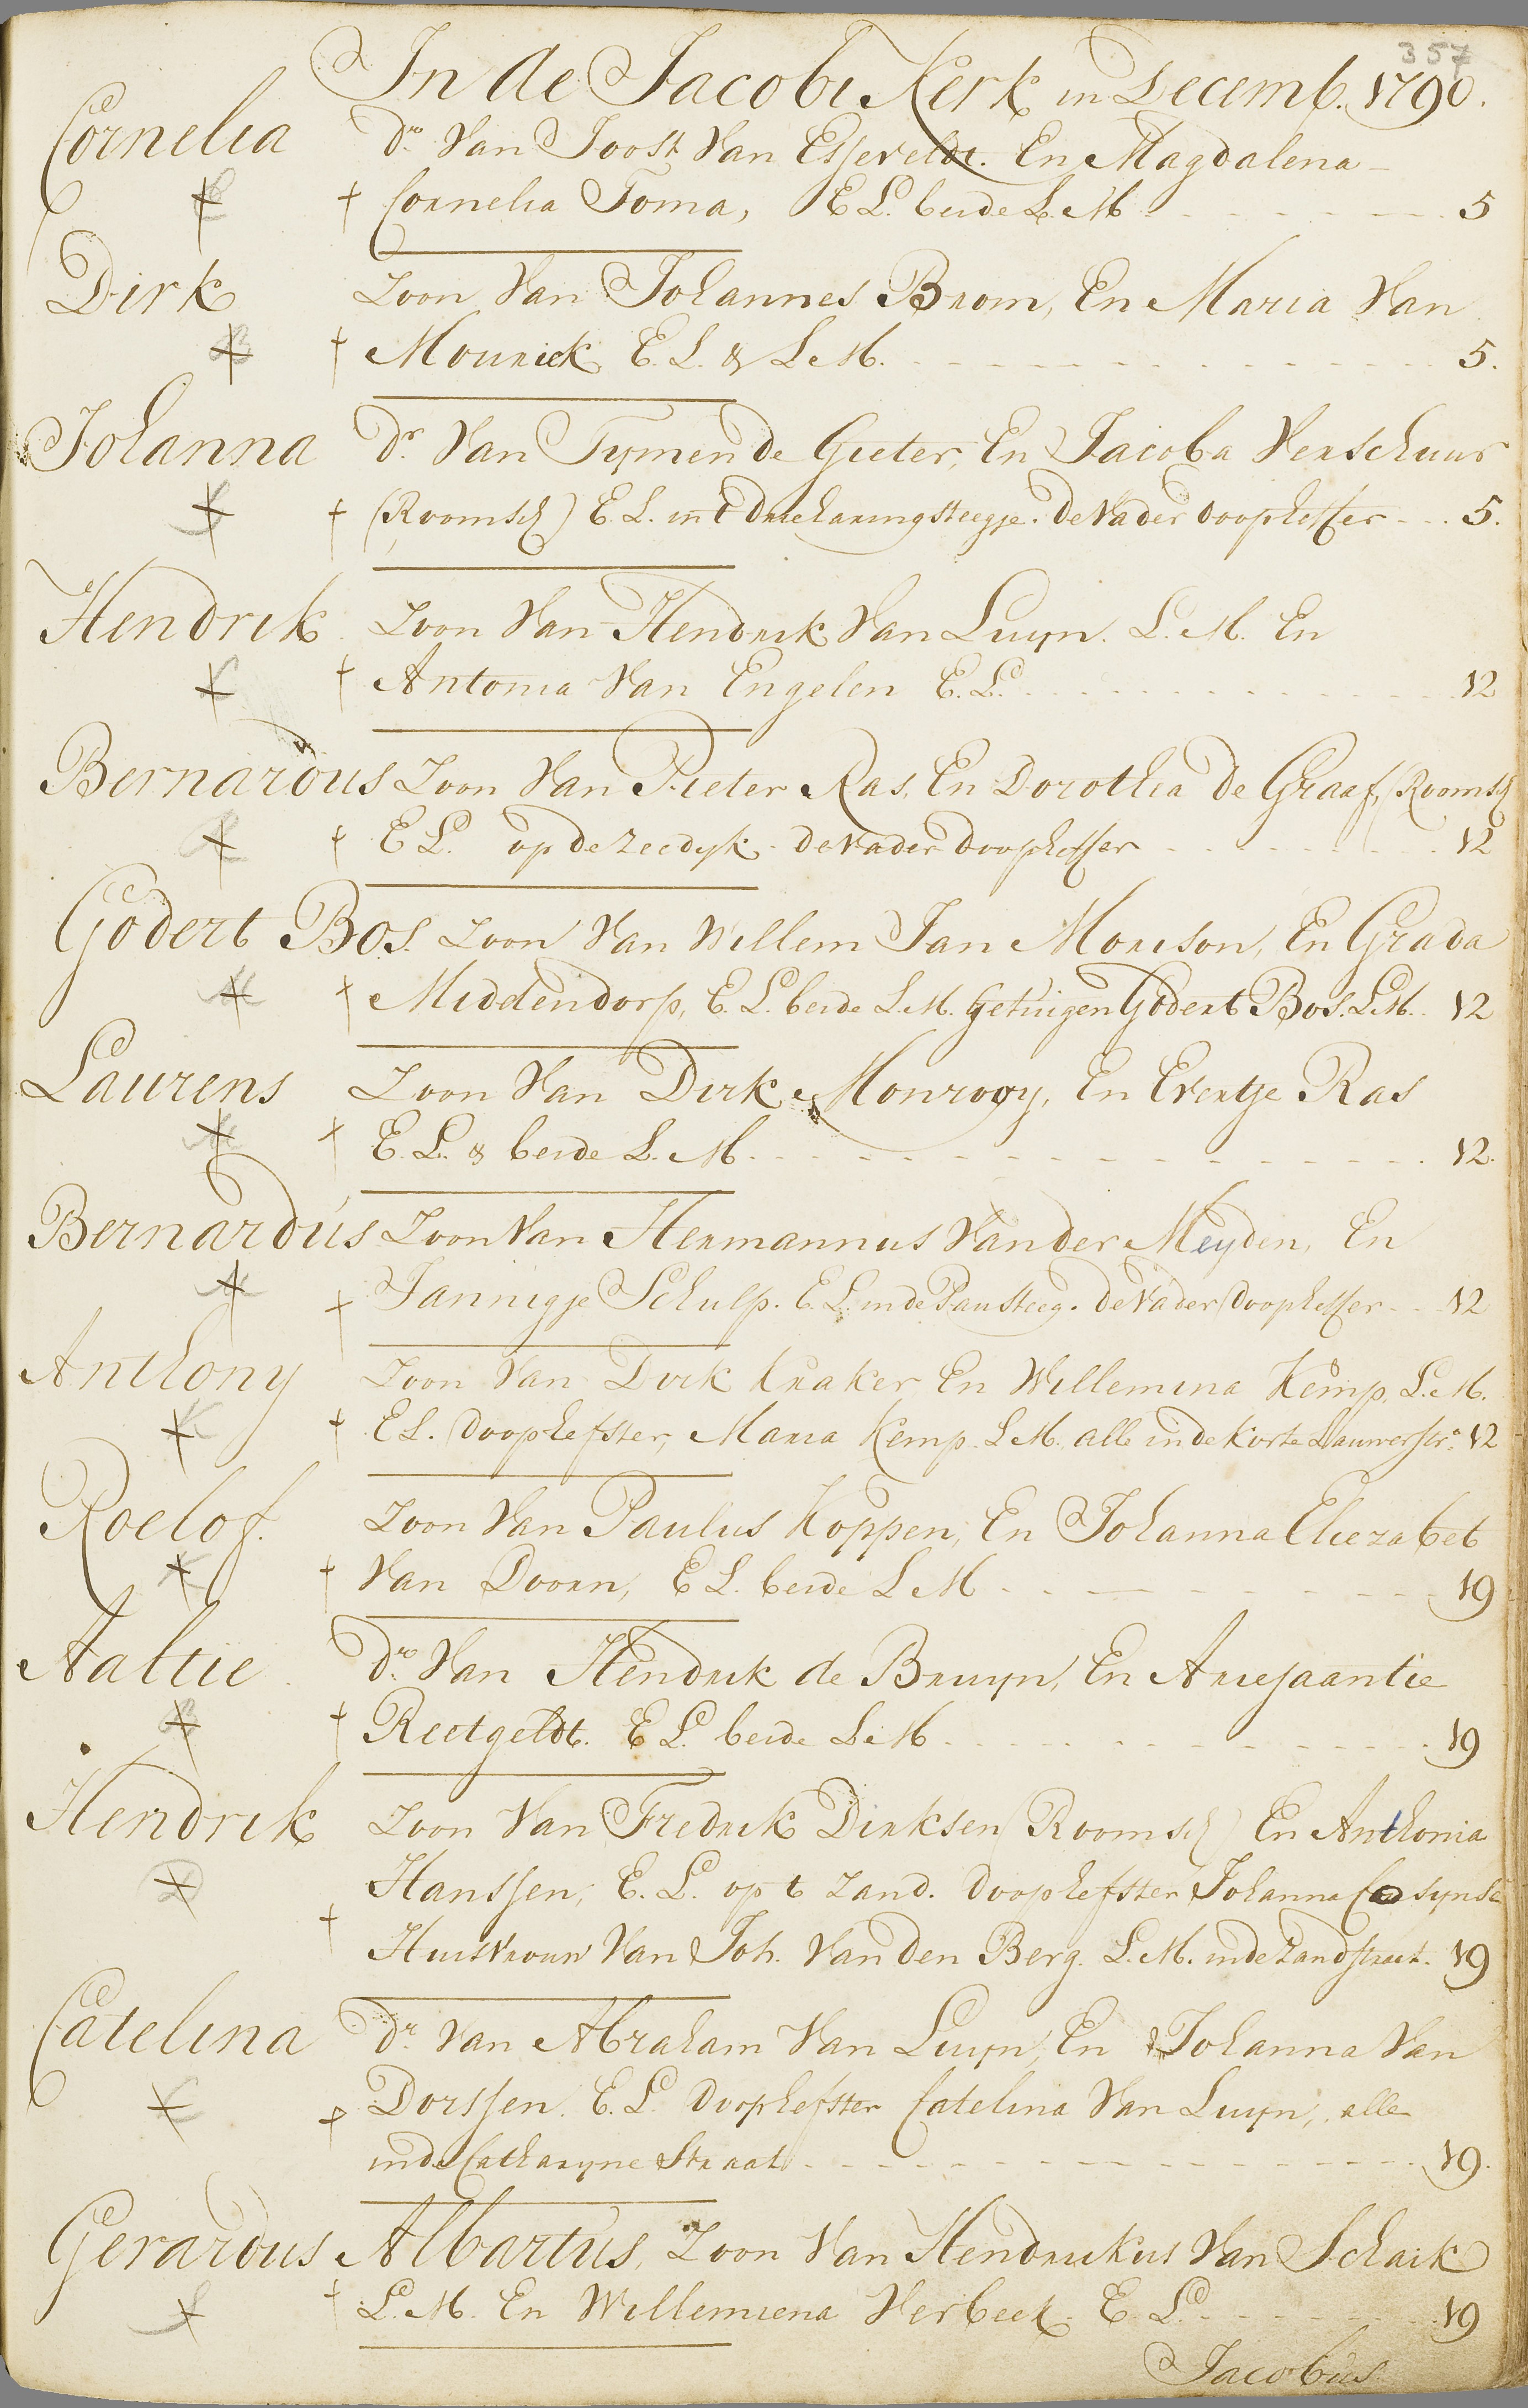 357
In de Jacobi Kerk in Decemb. 1790.
Cornelia dr. Van Joost Van Esseveldt. En Magdalena
† Cornelia Toma, E L. beide L. M 5
Dirk Zoon Van Johannes Brom, En Maria Van
† Mourick E. L. & L. M. 5.
Johanna dr. Van Tymen de Gieter, En Jacoba Verschuur
† (Roomsch) E. L. in t Drieharingsteegje. de Vader doopheffer 5.
Hendrik Zoon Van Hendrik Van Luyn. L. M. En
† Antonia Van Engelen E. L. 12
Bernardus Zoon Van Pieter Ras, En Dorothea de Graaf, (Roomsch
† E L. op de Zeedyk. de Vader doopheffer 12
Godert Bos. Zoon Van Willem Jan Morison, En Grada
† Middendorp, E. L. beide L. M. Getuigen Godert Bos. L M. 12
Laurens Zoon Van Dirk Monrooy, En Evertje Ras
† E. L. & beide L. M. 12.
Bernardus Zoon Van Hermannus Van der Meyden, En
† Jannigje Schulp. E L. in de Pausteeg. de Vader doopheffer 12
Anthony Zoon Van Dirk Kraker En Willemina Kemp, L. M.
† E L. doophefster, Maria Kemp. L M. alle in de Korte Lauwerstr. 12
Roelof. Zoon Van Paulus Koppen, En Johanna Eliezabet
† Van Doorn, E L. beide L M 19
Aaltie dr. Van Hendrik de Bruyn, En Ariejaantie
† Reetgeldt. E L. beide L. M 19
Hendrik Zoon Van Fredrik Dirksen (Roomsch) En Anthonia
Hanssen, E. L. op t Zand. doophefster Johanna
† Huisvrouw Van Joh. Van den Berg. L. M. in de Zandstraat. 19
Catelina dr. Van Abraham Van Luyn, En Johanna Van
† Dorssen. E. L. doophefster Catelina Van Luyn, alle
in de Catharyne Straat 19.
Gerardus Albartus, Zoon Van Hendrikus Van Schaik
† L. M. En Willemiena Verbeek E. L. 19
Jacobus